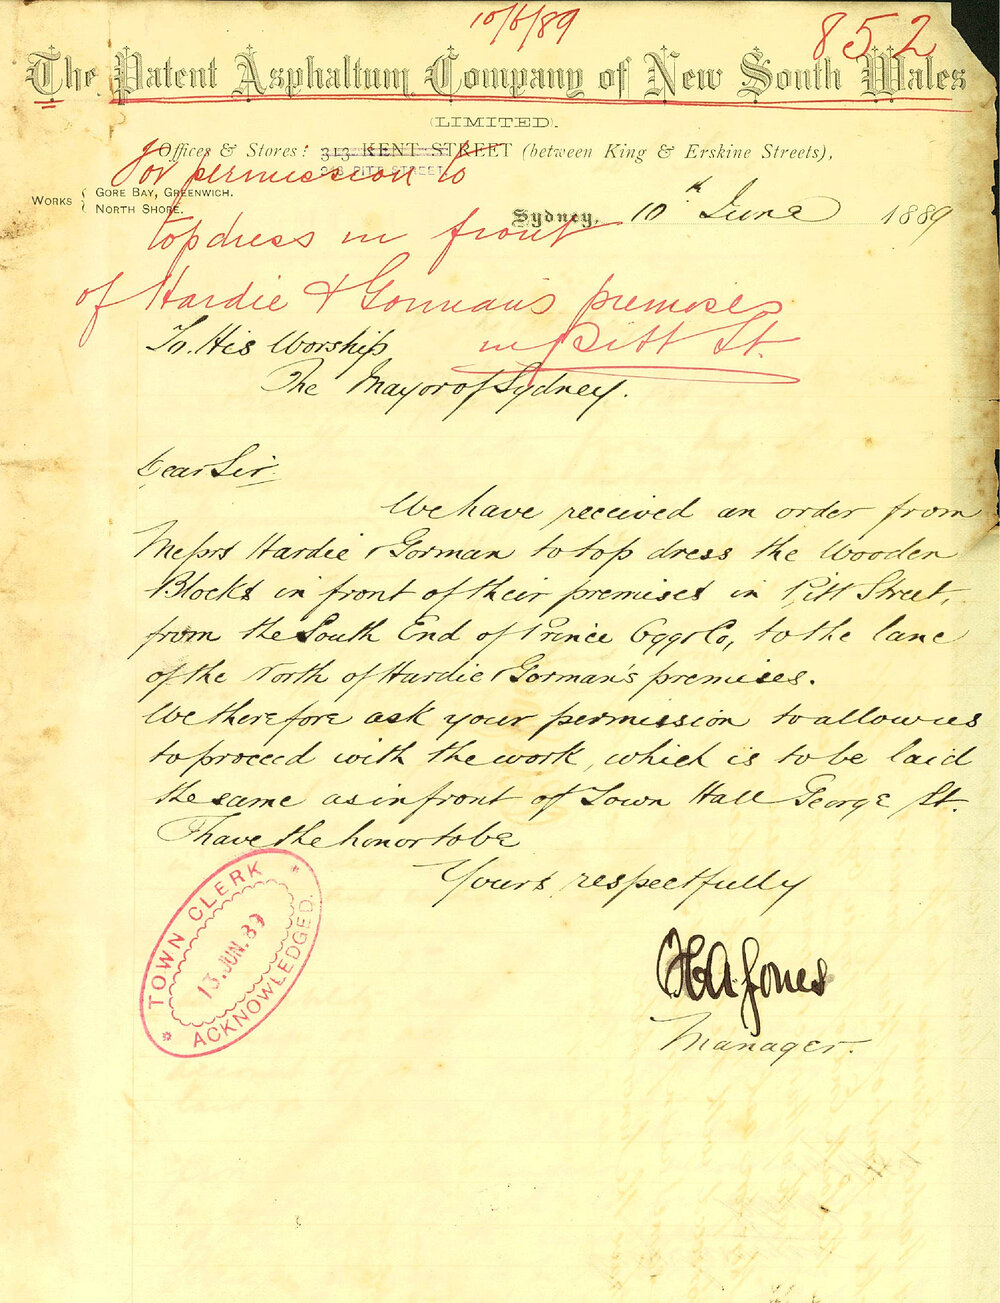 10/6/89
852
The Patent Asphaltum Company of New South Wales
(LIMITED).
Offices & Stores: 313 KENT STREET (between King & Erskine Streets),
PITT STREET
WORKS { GORE BAY, GREENWICH.
NORTH SHORE.
for permission to
Sydney, 10th June 1889
topdress in front
of Hardie & Gorman's premises
in Pitt St.
To His Worship
The Mayor of Sydney.
Dear Sir
We have received an order from
Messrs Hardie & Gorman to top dress the Wooden
Blocks in front of their premises in Pitt Street,
from the South End of Prince Ogg & Co, to the lane
of the North of Hardie & Gorman's premises.
We therefore ask your permission to allow us
to proceed with the work, which is to be laid
the same as in front of Town Hall George St.
I have the honor to be
Yours respectfully
H A Jones
Manager.
TOWN CLERK
13. JUN. 89
ACKNOWLEDGED.